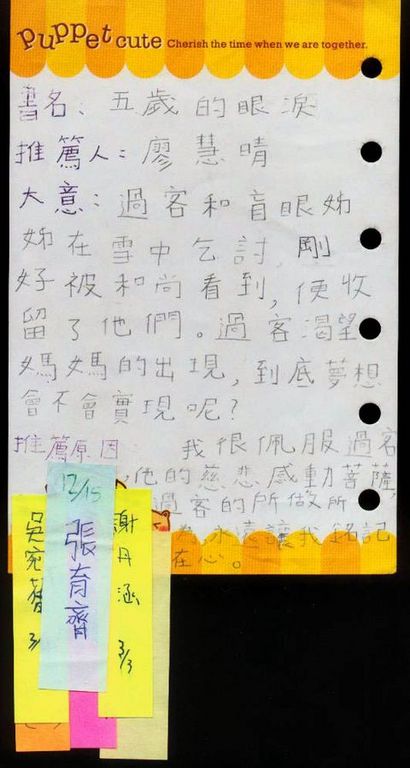 Puppet cute Cherish the time when we are together.
書名：五歲的眼淚
推薦人：廖慧晴
大意：過客和盲眼姊
姊在雪中乞討，剛
好被和尚看到，便收
留了他們。過客渴望
媽媽的出現，到底夢想
會不會實現呢？
推薦原因 我很佩服過客
，他的慈悲感動菩薩，
過客的所做所
為永遠讓我銘記
在心。
12/15
張育齊
謝丹涵
3/3
吳宛
3/